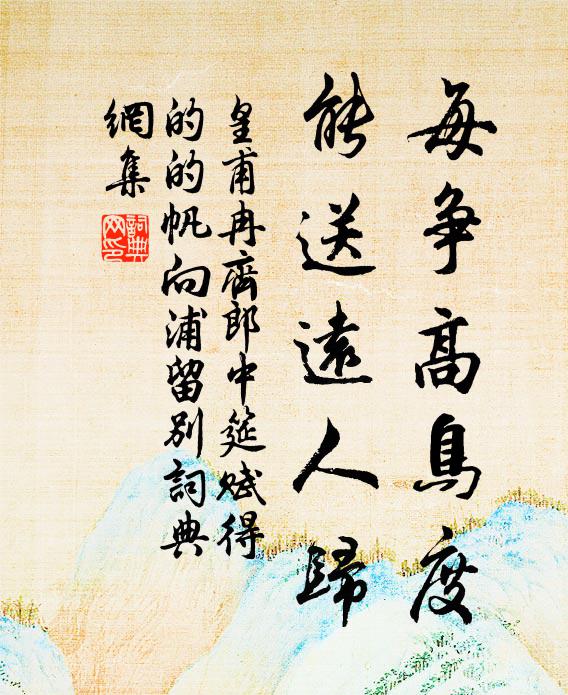 每爭高鳥度
能送遠人歸
皇甫冉齊郎中筵賦得
的的帆向浦留別詞典
網集
詞典
网印